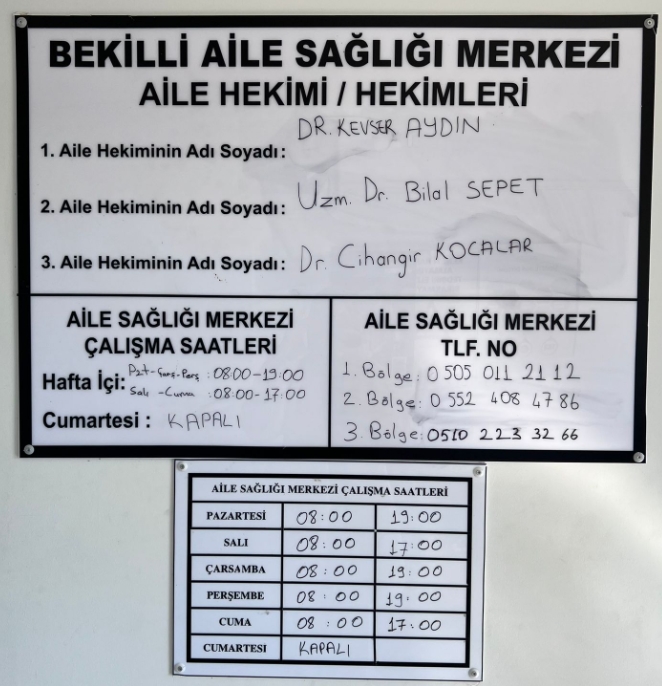 BEKİLLİ AİLE SAĞLIĞI MERKEZİ
AİLE HEKİMİ / HEKİMLERİ
1. Aile Hekiminin Adı Soyadı: DR. KEVSER AYDIN
2. Aile Hekiminin Adı Soyadı: Uzm. Dr. Bilal SEPET
3. Aile Hekiminin Adı Soyadı: Dr. Cihangir KOCALAR
AİLE SAĞLIĞI MERKEZİ
ÇALIŞMA SAATLERİ
Hafta İçi: Pzt-Çarş-Perş : 08:00-19:00
Salı -Cuma : 08:00-17:00
Cumartesi : KAPALI
AİLE SAĞLIĞI MERKEZİ
TLF. NO
1. Bölge: 0 505 011 21 12
2. Bölge: 0 552 408 47 86
3 Bölge: 0510 223 32 66
AİLE SAĞLIĞI MERKEZİ ÇALIŞMA SAATLERİ
PAZARTESİ 08:00 19:00
SALI 08:00 17:00
ÇARSAMBA 08:00 19:00
PERŞEMBE 08:00 19:00
CUMA 08:00 17:00
CUMARTESI KAPALI